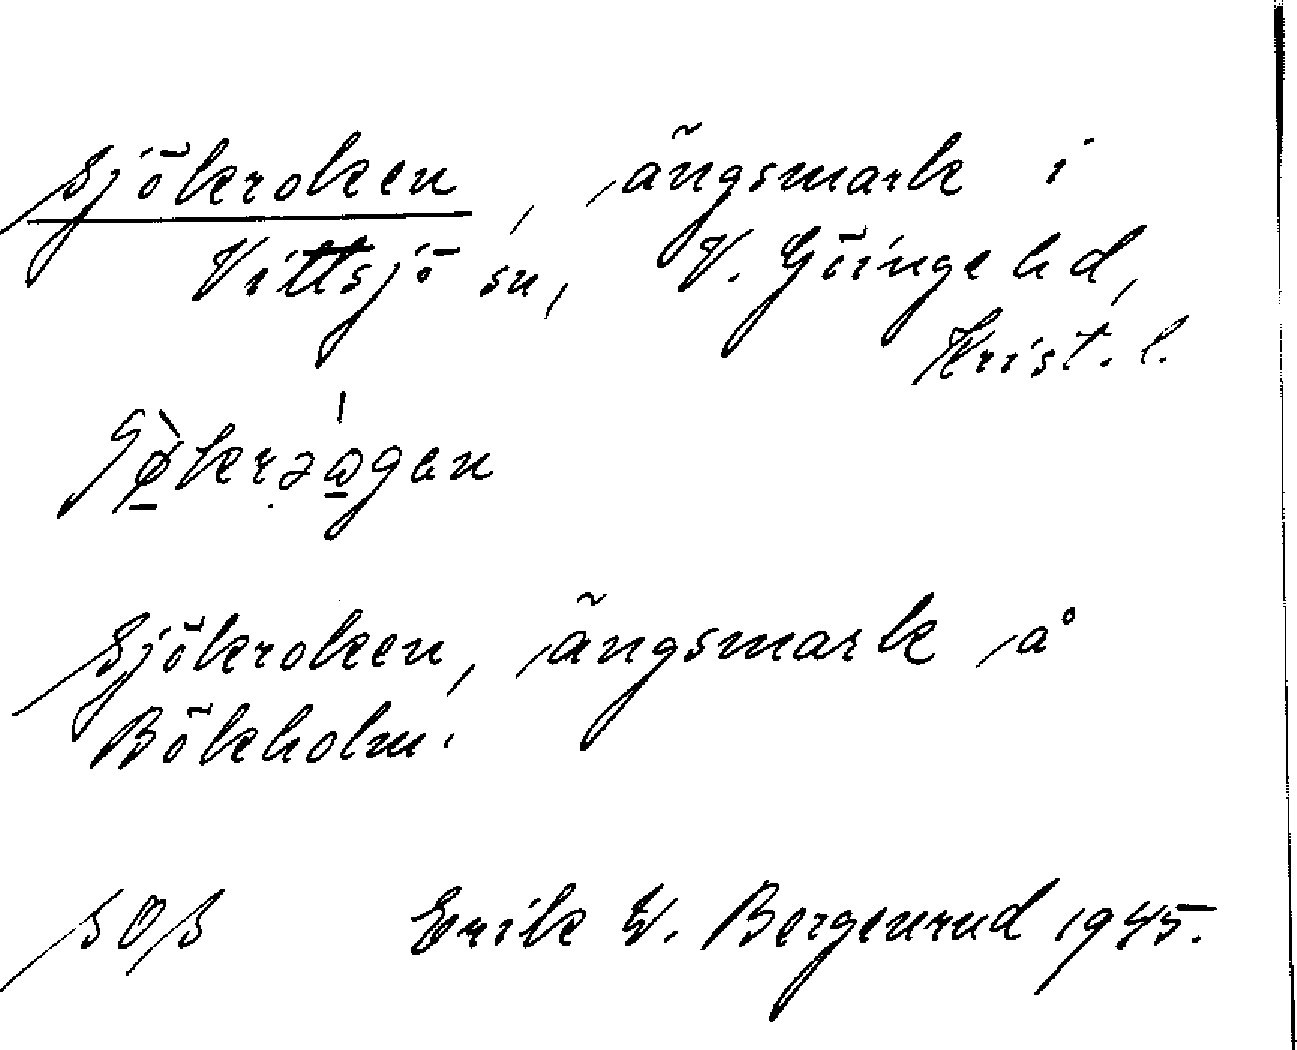 Sjökroken, ängsmark i
Vittsjö sn, V. Göinge hd,
Krist. l.
Sjökroken, ängsmark å
Bökholm.
SOS Erik W. Bergenrud 1945.